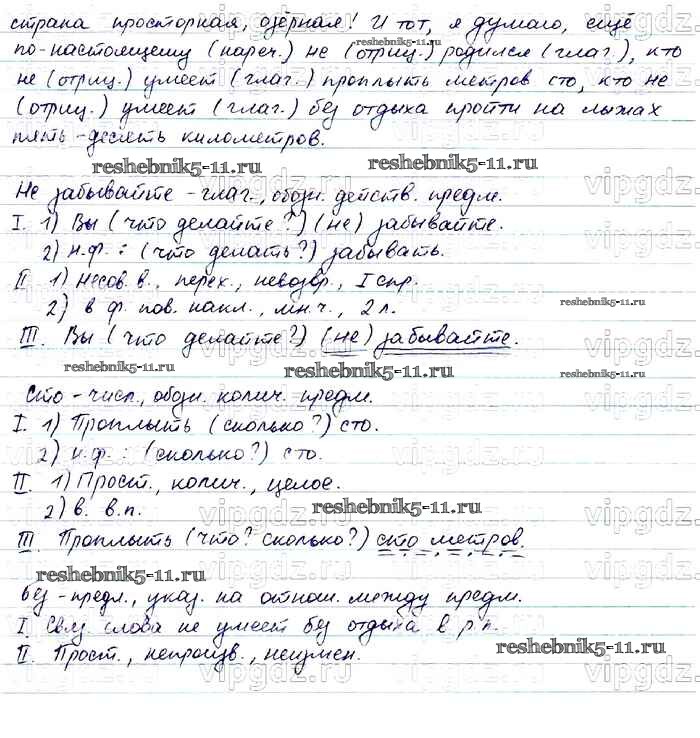 страна просторная, озёрная! И тот, я думаю, ещё
по-настоящему (нареч.) не (отриц.) родился (глаг.), кто
не (отриц.) умеет (глаг.) проплыть метров сто, кто не
(отриц.) умеет (глаг.) без отдыха пройти на лыжах
пять-десять километров.
reshebnik5-11.ru
reshebnik5-11.ru
reshebnik5-11.ru
Не забывайте - глаг., обозн. действ. предм.
I. 1) Вы (что делайте?) (не) забывайте.
2) н.ф.: (что делать?) забывать.
II 1) Несов. в., перех., невозвр., I спр.
2) в ф. пов. накл., мн.ч., 2 л.
reshebnik5-11.ru
III. Вы (что делайте?) (не) забывайте.
reshebnik5-11.ru
reshebnik5-11.ru
reshebnik5-11.ru
Сто - числ., обозн. колич. предм.
I. 1) Проплыть (сколько?) сто.
2) н.ф.: (сколько?) сто.
II. 1) Прост., колич., целое.
2) в. в.п.
reshebnik5-11.ru
III. Проплыть (что? сколько?) сто метров.
reshebnik5-11.ru
Без - предл., указ. на отнош. между предм.
I. Связ. слова не умеет без отдыха в р.п.
II. Прост., непроизв., неизмен.
reshebnik5-11.ru
reshebnik5-11.ru